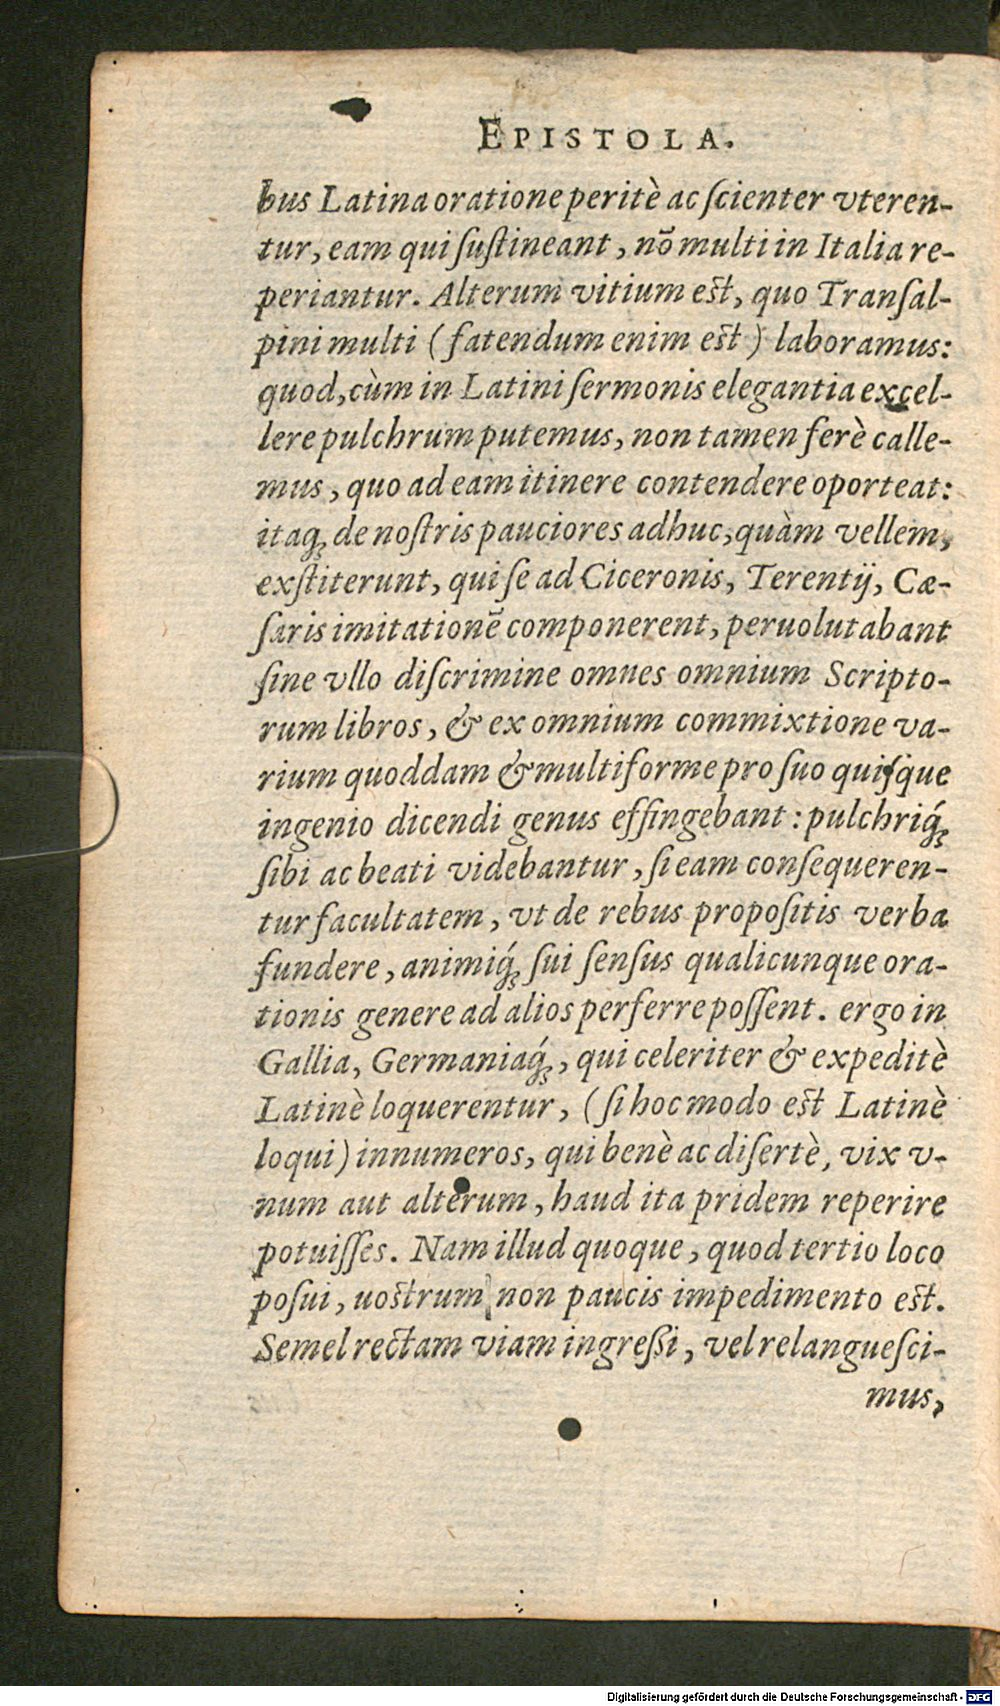 EPISTOLA.
bus Latina oratione peritè ac ſcienter vteren-
tur, eam qui ſuſtineant, nō multi in Italia re-
periantur. Alterum vitium est, quo Tranſal-
pini multi (fatendum enim est) laboramus:
quod, cùm in Latini ſermonis elegantia excel-
lere pulchrum putemus, non tamen ferè calle-
mus, quo ad eam itinere contendere oporteat:
itaq; de noſtris pauciores adhuc, quàm vellem,
exſtiterunt, qui ſe ad Ciceronis, Terentij, Cæ-
ſaris imitationē componerent, peruolutabant
ſine vllo diſcrimine omnes omnium Scripto-
rum libros, & ex omnium commixtione va-
rium quoddam & multiforme pro ſuo quiſque
ingenio dicendi genus effingebant: pulchriq́;
ſibi ac beati videbantur, ſi eam conſequeren-
tur facultatem, vt de rebus propoſitis verba
fundere, animiq́; ſui ſenſus qualicunque ora-
tionis genere ad alios perferre poſſent. ergo in
Gallia, Germaniaq́;, qui celeriter & expeditè
Latinè loquerentur, (ſi hoc modo est Latinè
loqui) innumeros, qui benè ac diſertè, vix v-
num aut alterum, haud ita pridem reperire
potuiſſes. Nam illud quoque, quod tertio loco
poſui, uostrum non paucis impedimento est.
Semel rectam viam ingreſſi, vel relangueſci-
mus,
Digitalisierung gefördert durch die Deutsche Forschungsgemeinschaft - DFG